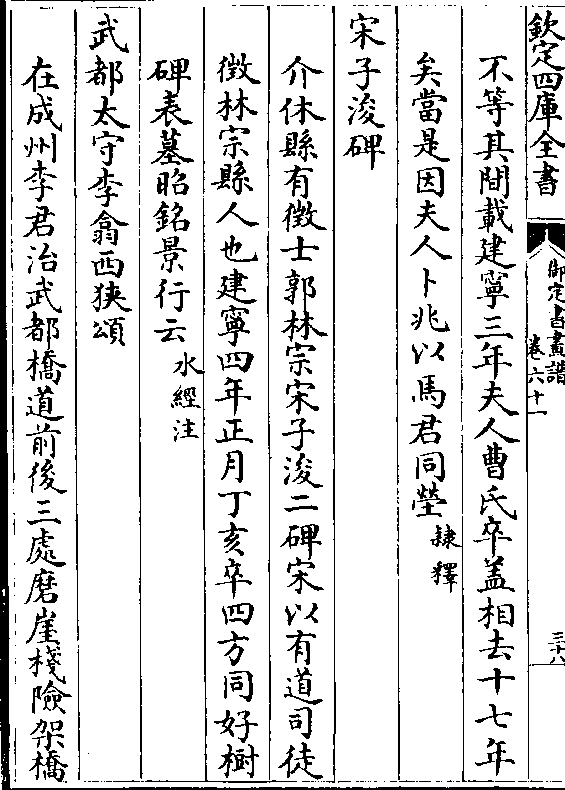 欽定四庫全書
御定書畫譜
卷六十一
三十八
不等其間載建寧三年夫人曹氏卒蓋相去十七年
矣當是因夫人卜兆以馬君同塋隷釋
宋子浚碑
介休縣有徵士郭林宗宋子浚二碑宋以有道司徒
徵林宗縣人也建寧四年正月丁亥卒四方同好樹
碑表墓昭銘景行云水經注
武都太守李翕西狹頌
在成州李君治武都橋道前後三處磨崖棧險架橋